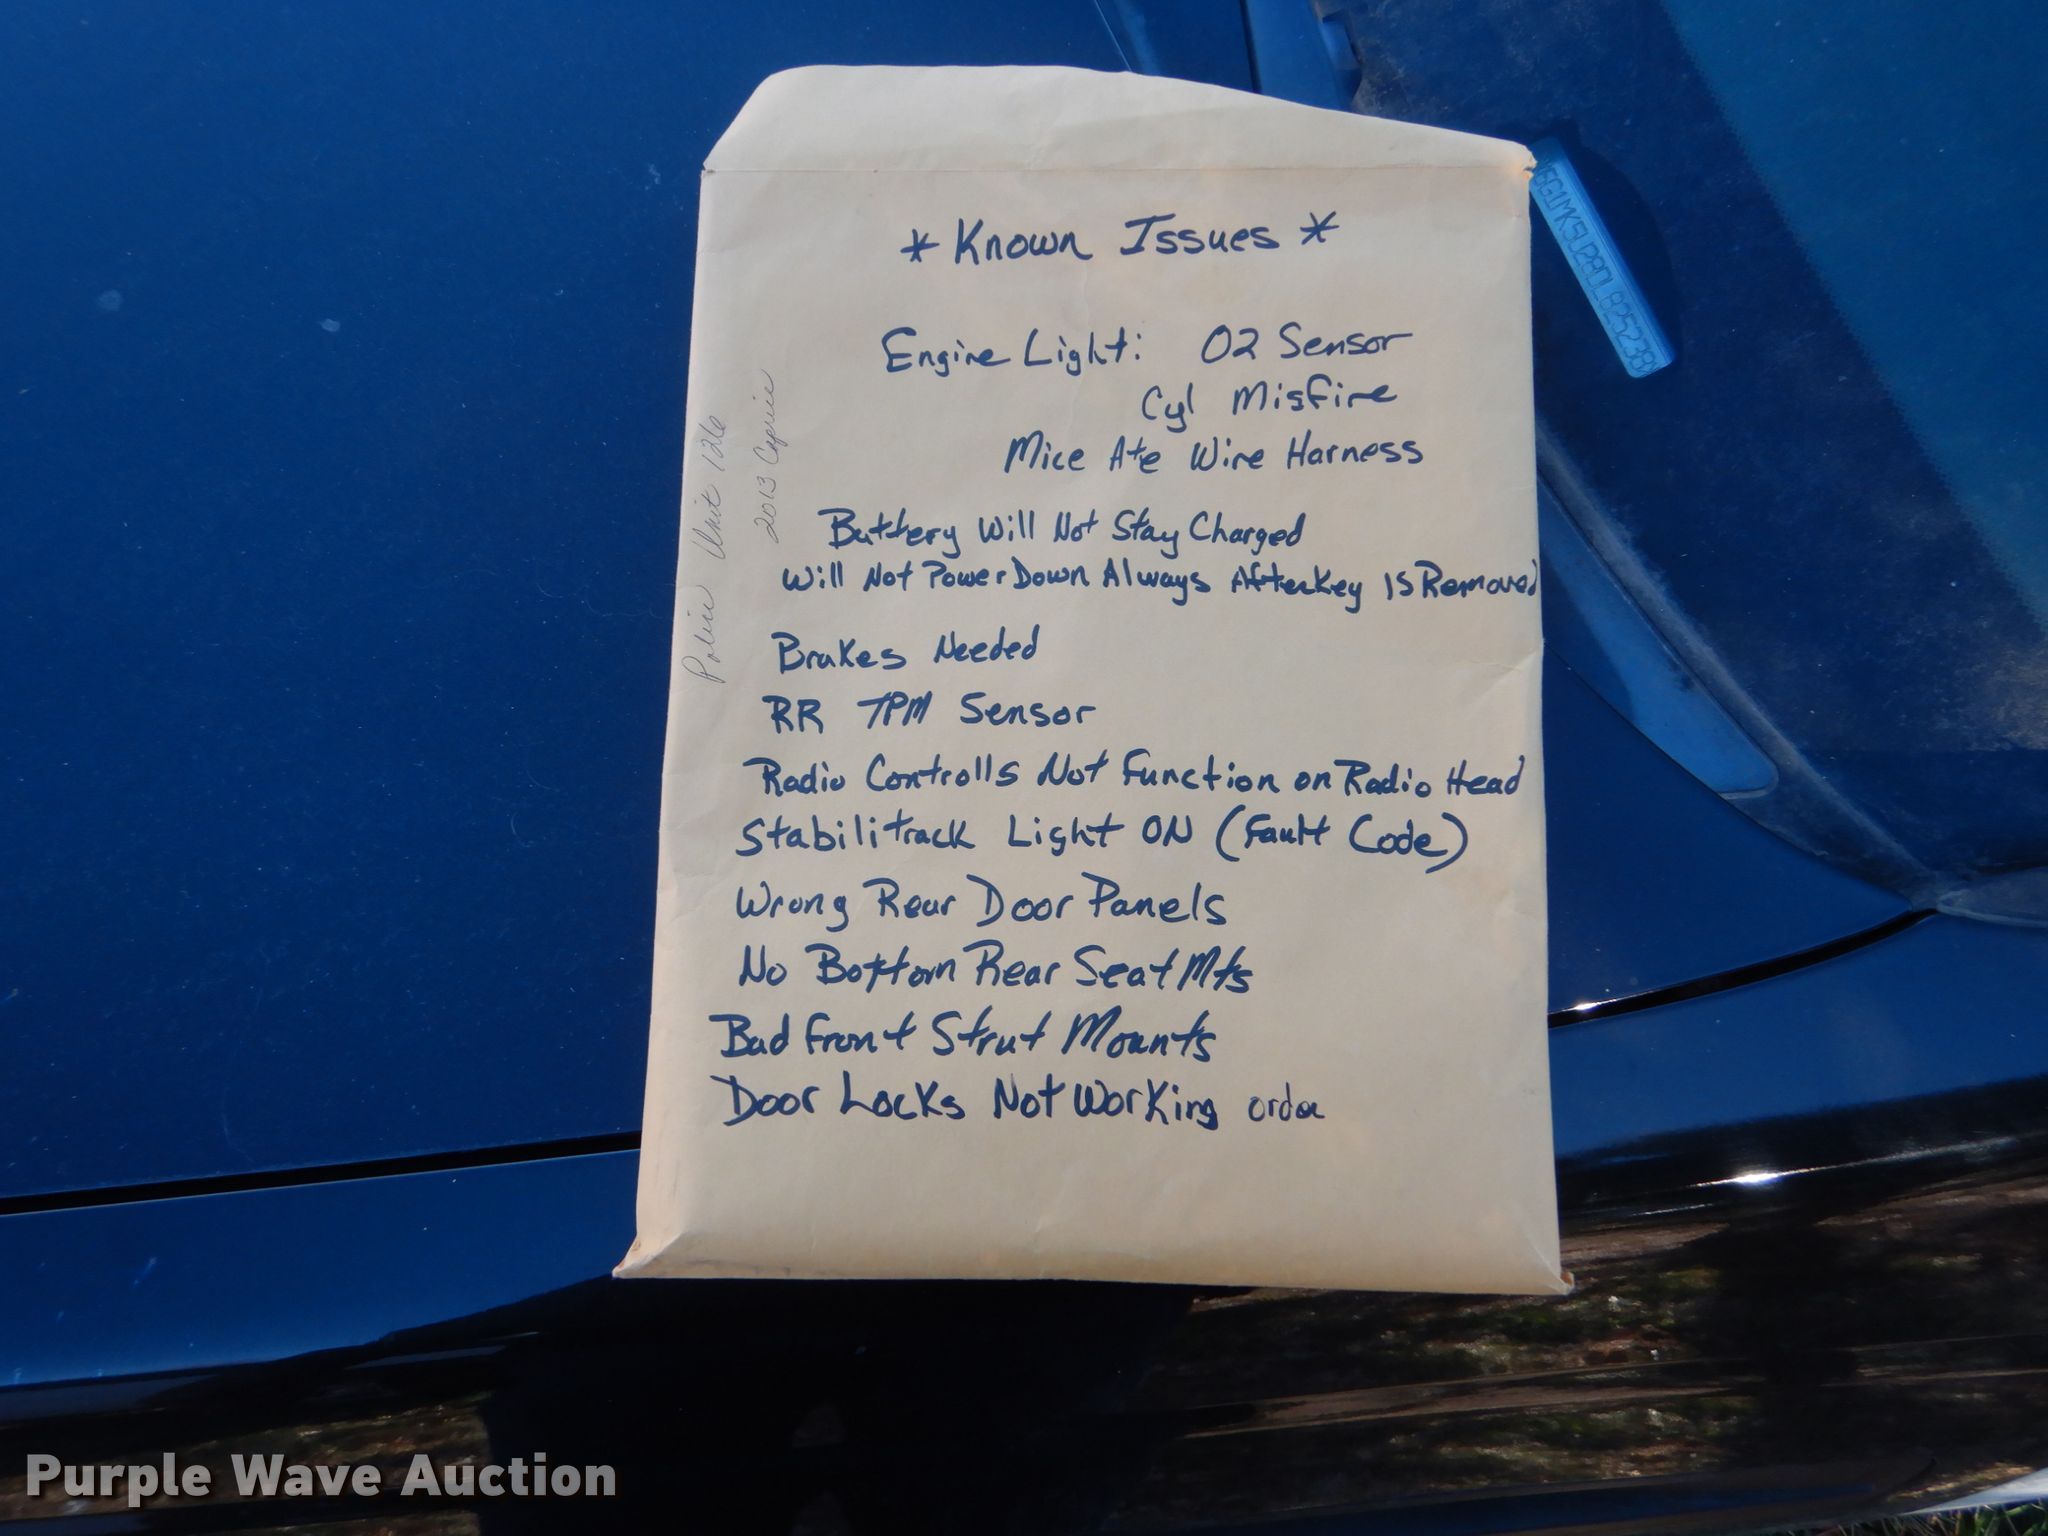 * Known Issues *
Engine Light: O2 Sensor
Cyl Misfire
Mice Ate Wire Harness
Battery Will Not Stay Charged
Will Not Power Down Always After Key Is Removed
Brakes Needed
RR TPM Sensor
Radio Controlls Not Function on Radio Head
Stabilitrack Light ON (Fault Code)
Wrong Rear Door Panels
No Bottom Rear Seat Mts
Bad Front Strut Mounts
Door Locks Not Working order
Police Unit 126
2013 Caprice
6G1MK5U28DL825238
Purple Wave Auction